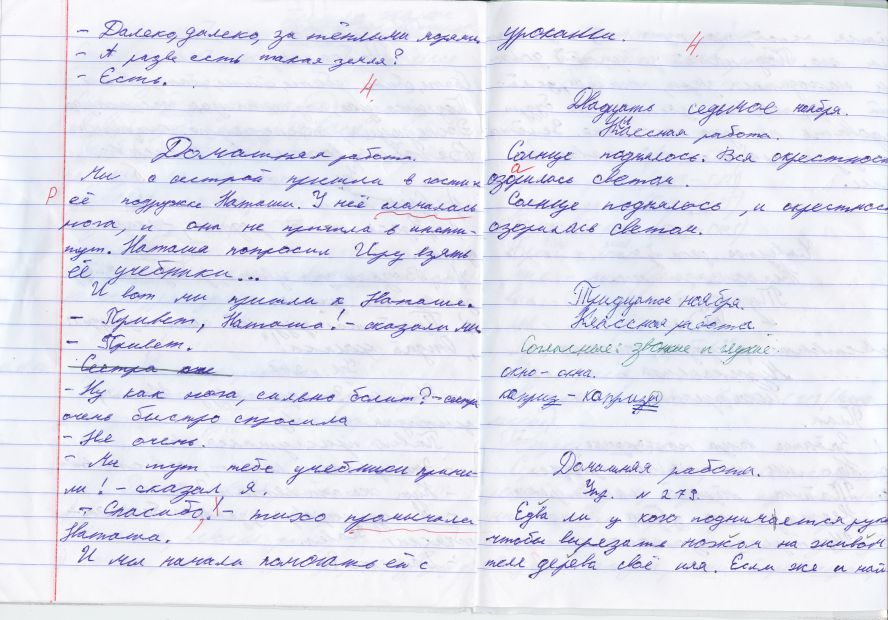 - Далеко, далеко, за тёплыми морями.
- А разве есть такая земля?
- Есть.
4.
Домашняя работа.
Р
Мы с сестрой пришли в гости к
её подружке Наташи. У неё сломалась
нога, и она не пришла в инсти-
тут. Наташа попросил Иру взять
её учебники...
И вот мы пришли к Наташе.
- Привет, Наташа! - сказали мы.
- Привет.
Сестра
- Ну как нога, сильно болит? - сестра
очень быстро спросила
- Не очень.
- Мы тут тебе учебники принес-
ли! - сказал я.
- Спасибо, - тихо промычала
Наташа.
И мы начали помогать ей с
уроками.
4.
Двадцать седьмое ноября.
Классная работа.
Солнце поднялось. Вся окрестность
озарилась светом.
Солнце поднялось, и окрестность
озорилась светом.
Тридцатое ноября.
Классная работа
Согласные: звонкие и глухие.
окно - окна.
каприз - капризы
Домашняя работа.
Упр. № 279.
Едва ли у кого поднимается рука
чтобы вырезать ножом на живом
теле дерева своё имя. Если же и най